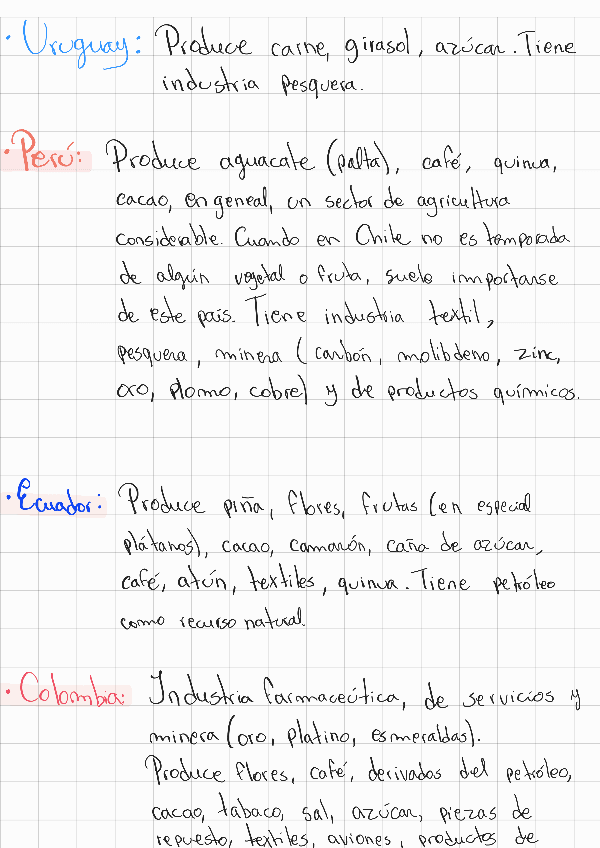 · Uruguay: Produce carne, girasol, azúcar. Tiene
industria pesquera.
· Perú: Produce aguacate (palta), café, quinua,
cacao, en geneal, un sector de agricultura
considerable. Cuando en Chile no es temporada
de algún vegetal o fruta, suele importarse
de este país. Tiene industria textil,
pesquera, minera (carbón, molibdeno, zinc,
oro, plomo, cobre) y de productos químicos.
· Ecuador: Produce piña, flores, frutas (en especial
plátanos), cacao, camarón, caña de azúcar,
café, atún, textiles, quinua. Tiene petróleo
como recurso natural.
· Colombia: Industria farmaceútica, de servicios y
minera (oro, platino, esmeraldas).
Produce flores, café, derivados del petróleo,
cacao, tabaco, sal, azúcar, piezas de
repuesto, textiles, aviones, productos de